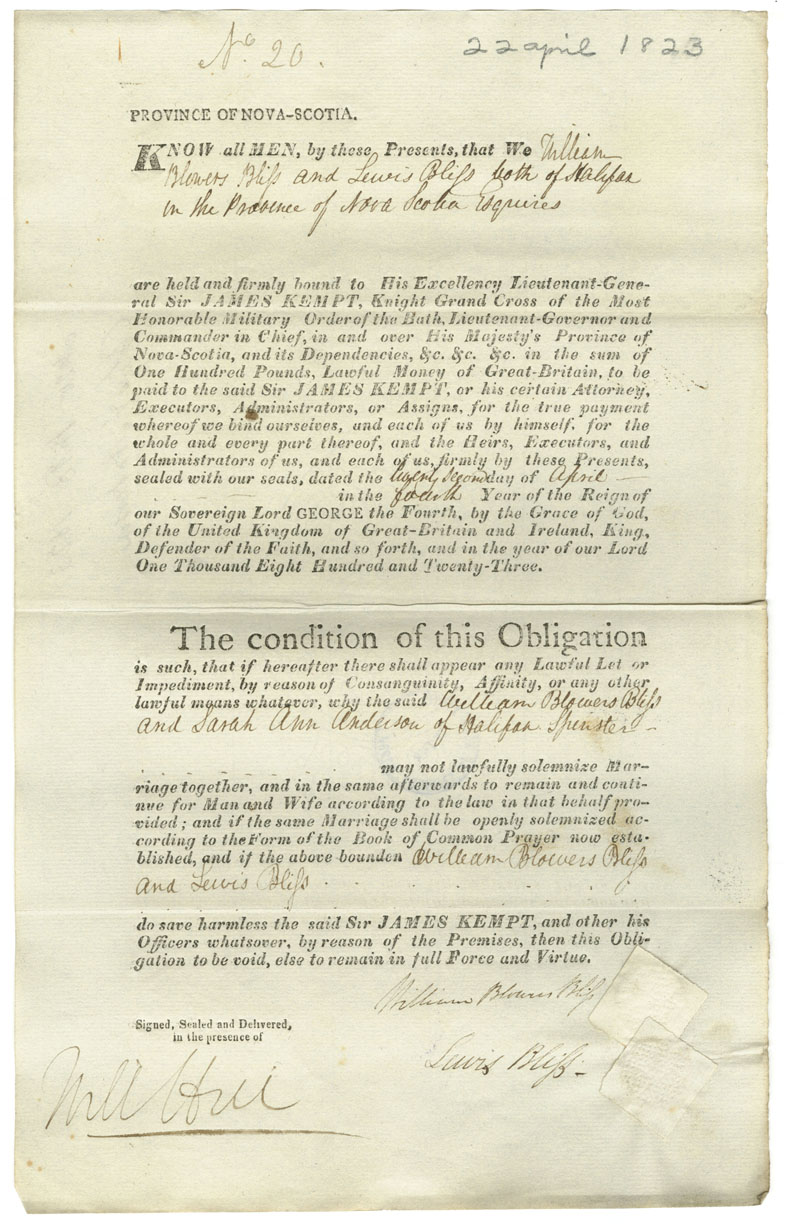 No. 20.
22 april 1823
PROVINCE OF NOVA-SCOTIA.
KNOW all MEN, by these Presents, that We William
Blowers Bliſs and Lewis Bliſs both of Halifax
in the Province of Nova Scotia Esquires
are held and firmly bound to His Excellency Lieutenant-Gene-
ral Sir JAMES KEMPT, Knight Grand Cross of the Most
Honorable Military Order of the Bath, Lieutenant-Governor and
Commander in Chief, in and over His Majesty's Province of
Nova-Scotia, and its Dependencies, &c. &c. &c. in the sum of
One Hundred Pounds, Lawful Money of Great-Britain, to be
paid to the said Sir JAMES KEMPT, or his certain Attorney,
Executors, Administrators, or Assigns, for the true payment
whereof we bind ourselves, and each of us by himself, for the
whole and every part thereof, and the Heirs, Executors, and
Administrators of us, and each of us, firmly by these Presents,
sealed with our seals, dated the twenty Second day of April
in the fourth Year of the Reign of
our Sovereign Lord GEORGE the Fourth, by the Grace of God,
of the United Kingdom of Great-Britain and Ireland, King,
Defender of the Faith, and so forth, and in the year of our Lord
One Thousand Eight Hundred and Twenty-Three.
The condition of this Obligation
is such, that if hereafter there shall appear any Lawful Let or
Impediment, by reason of Consanguinity, Affinity, or any other
lawful means whatever, why the said William Blowers Bliſs
and Sarah Ann Anderson of Halifax Spinster
may not lawfully solemnize Mar-
riage together, and in the same afterwards to remain and conti-
nue for Man and Wife according to the law in that behalf pro-
vided; and if the same Marriage shall be openly solemnized ac-
cording to the Form of the Book of Common Prayer now esta-
blished, and if the above bounden William Blowers Bliſs
and Lewis Bliſs
do save harmless the said Sir JAMES KEMPT, and other his
Officers whatsover, by reason of the Premises, then this Obli-
gation to be void, else to remain in full Force and Virtue.
William Blowers Bliſs
Signed, Sealed and Delivered,
in the presence of
Lewis Bliſs
Will Hill